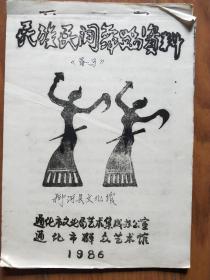 民族民间舞蹈资料
《番号》
柳河县文化馆
通化市文化局艺术集成办公室
通化市群众艺术馆
1986